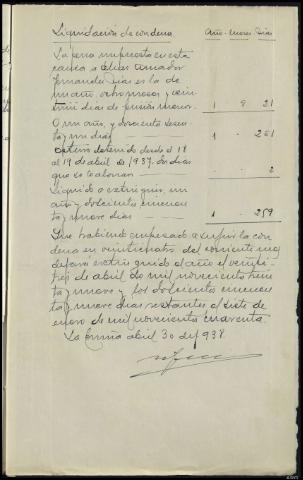 Liquidación de condena Año - meses Dias
La pena impuesta en esta
causa a Amador
Fernandez Dias es la de
un año, ocho meses y vein-
tiun dias de prision menor. 1 8 21
O un año, y doscientos sesen-
ta y un dias 1 - 261
Estuvo detenido desde el 18
al 19 de abril de 1937. dos dias
que se le abonan - - 2
Liquido a extinguir, un
año y doscientos cincuen-
ta y nueve dias 1 - 259
Que habiendo empezado a cumplir la con-
dena en veinticuatro del corriente mes
dejará extinguido el año el veinti-
tres de abril de mil novecientos trein-
ta y nueve y los doscientos cincuen-
ta y nueve dias restantes el siete de
enero de mil novecientos cuarenta.
La Coruña abril 30 de 1938